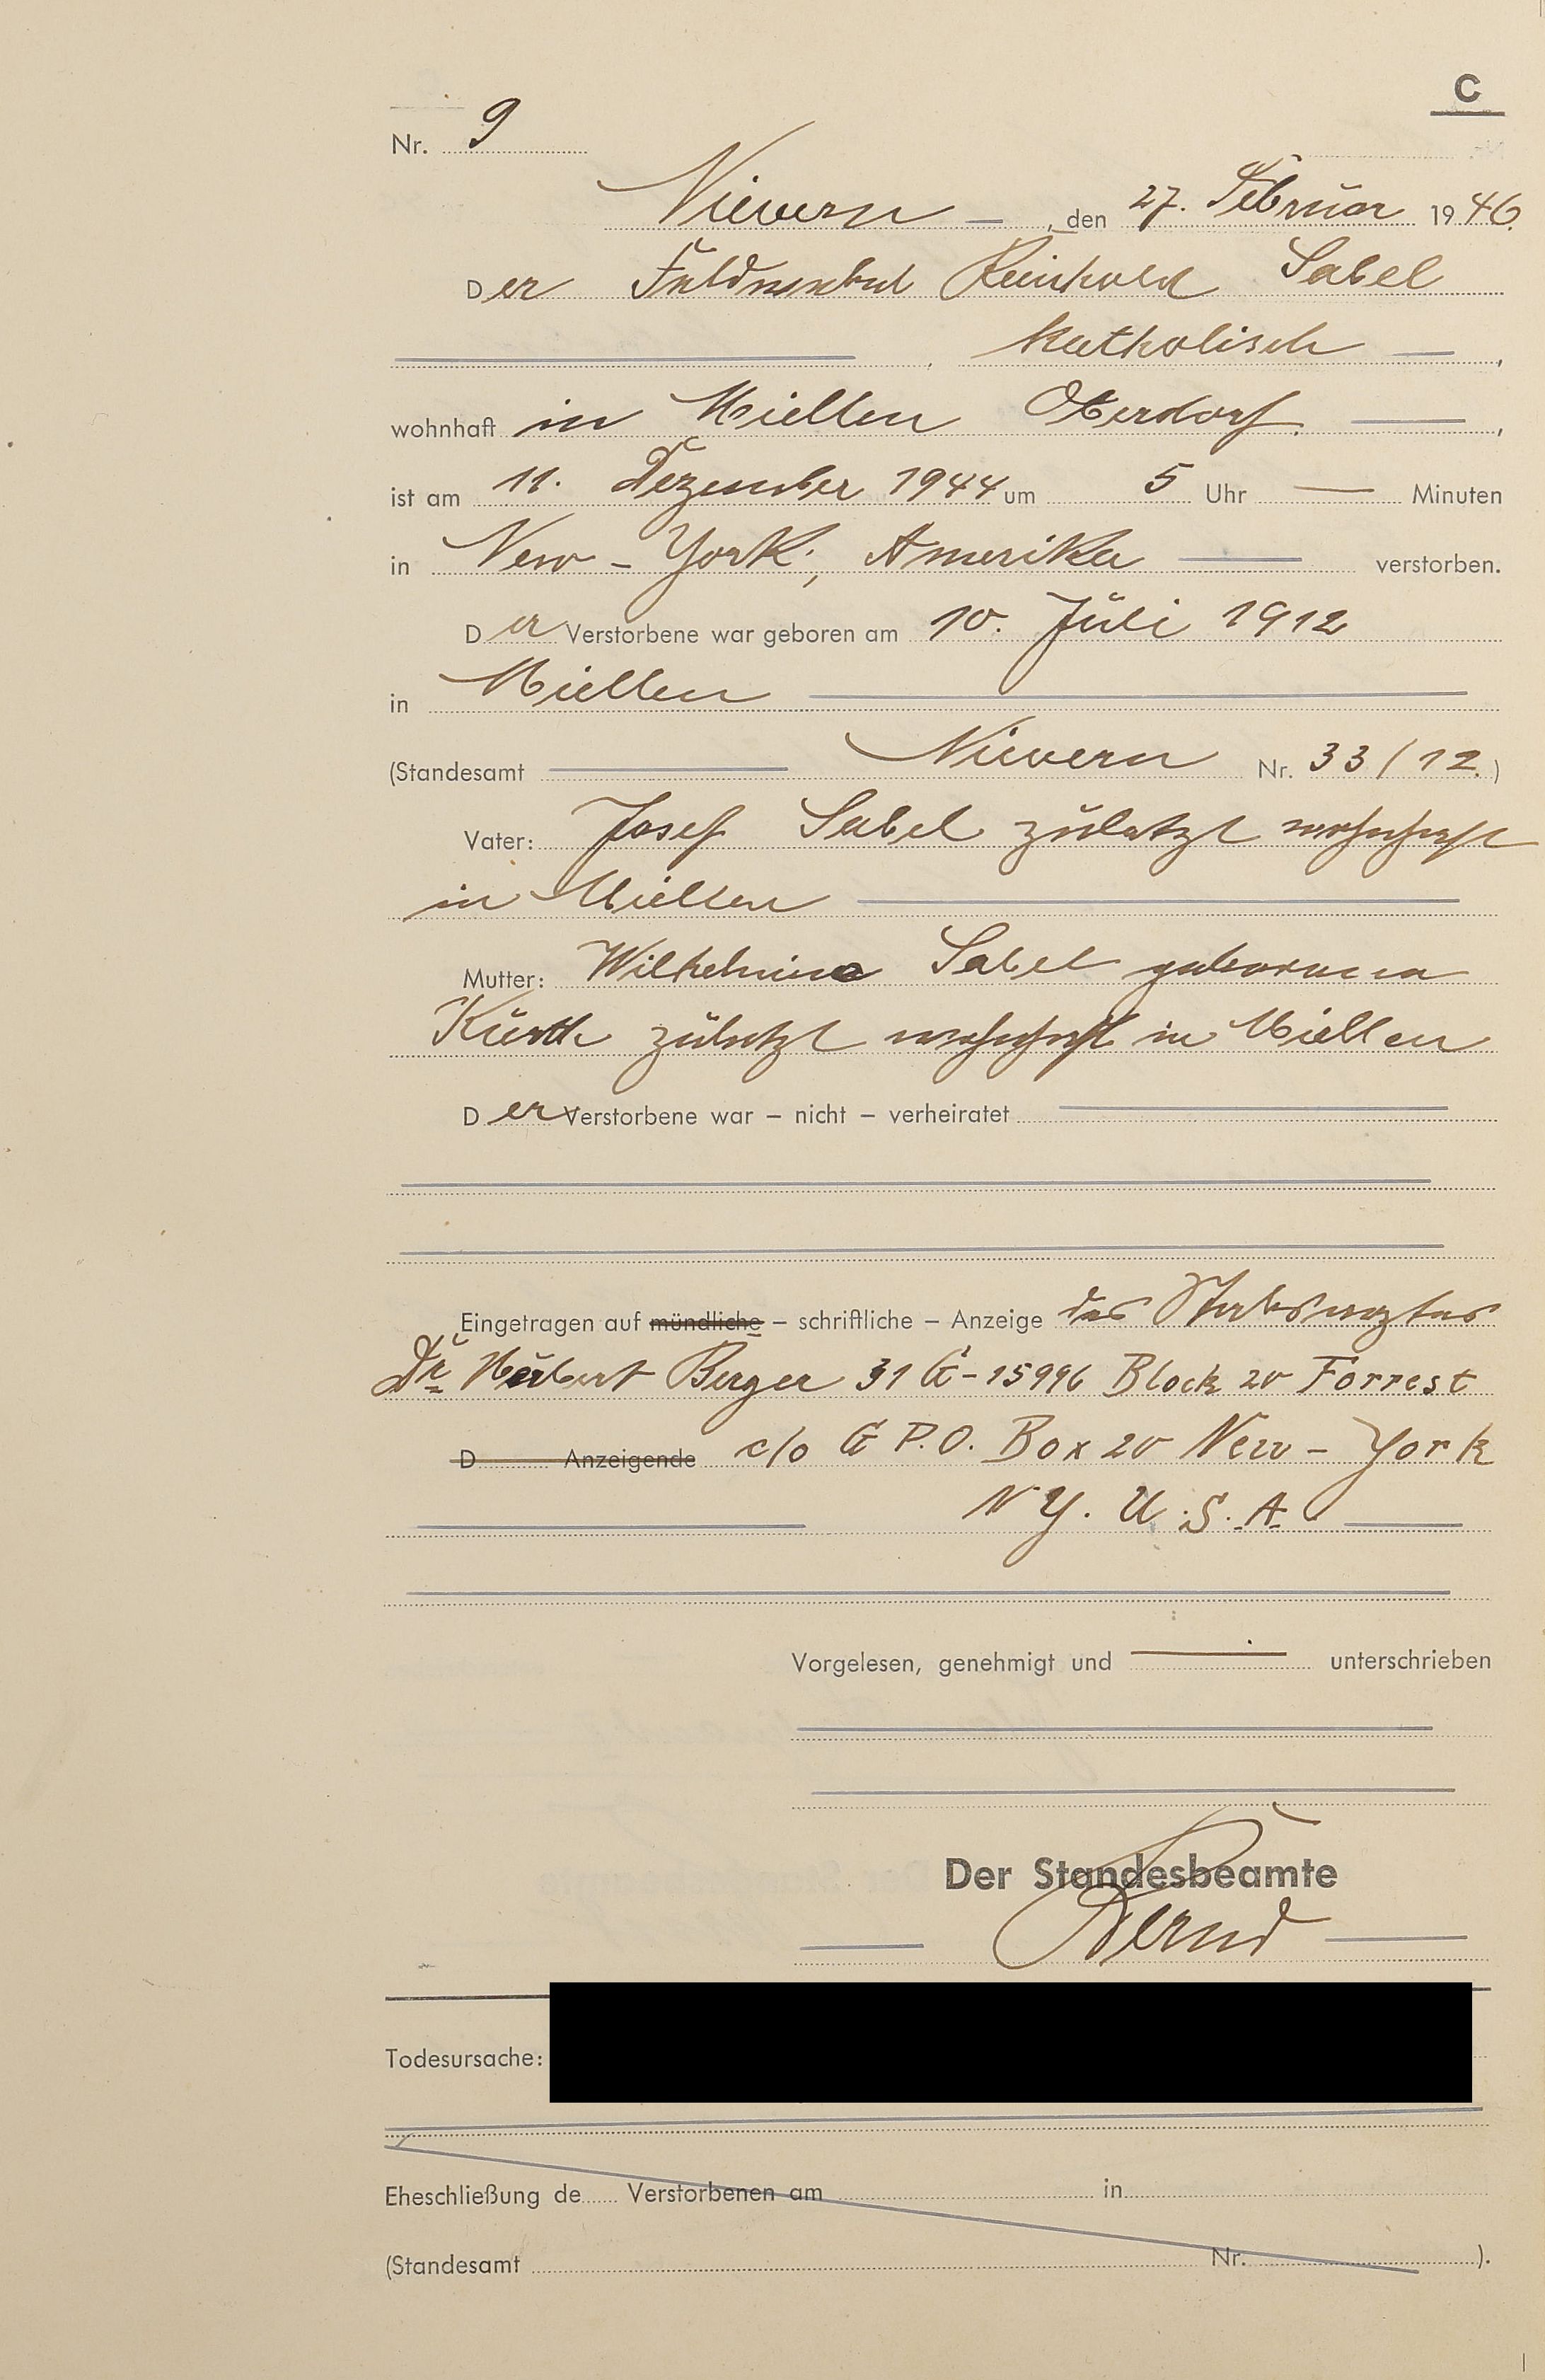 C
Nr. 9
Nievern, den 27. Februar 1946.
Der Reinhold Sabel
katholisch,
wohnhaft in Miellen Oberdorf.,
ist am 11. Dezember 1944 um 5 Uhr — Minuten
in New-York, Amerika verstorben.
Der Verstorbene war geboren am 10. Juli 1912
in Miellen
(Standesamt Nievern Nr. 33/12.)
Vater: Josef Sabel zuletzt wohnhaft
in Miellen
Mutter: Wilhelmine Sabel geborene
zuletzt wohnhaft in Miellen
Der Verstorbene war – nicht – verheiratet
Eingetragen auf mündliche – schriftliche – Anzeige des Stabsarztes
Dr. Herbert Berger 31 G-15996 Block 20 Forrest
D Anzeigende c/o G P.O. Box 20 New-York
N Y. U.S.A.
Vorgelesen, genehmigt und — unterschrieben
Der Standesbeamte
Todesursache:
Eheschließung de Verstorbenen am in
(Standesamt Nr. ).